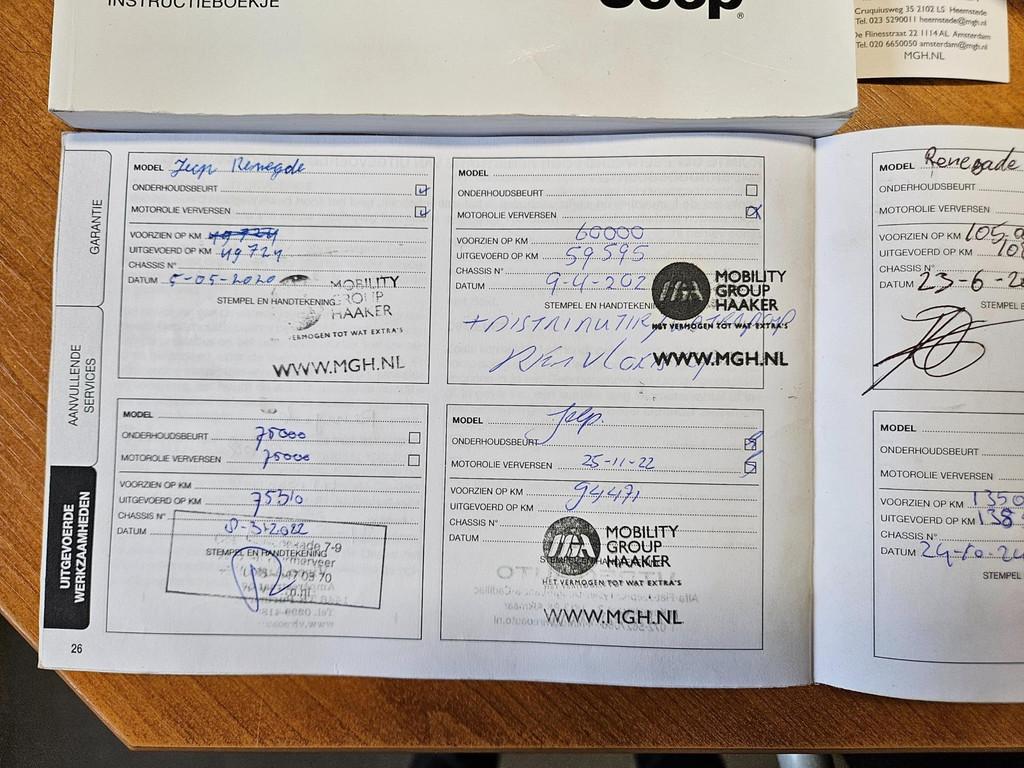 INSTRUCTIEBOEKJE
Jeep®
Cruquiusweg 35 2102 LS Heemstede
Tel. 023 5290011 heemstede@mgh.nl
De Flinesstraat 22 1114 AL Amsterdam
Tel. 020 6650050 amsterdam@mgh.nl
MGH.NL
GARANTIE
AANVULLENDE
SERVICES
UITGEVOERDE
WERKZAAMHEDEN
MODEL Jeep Renegde
ONDERHOUDSBEURT
MOTOROLIE VERVERSEN
VOORZIEN OP KM 49724
UITGEVOERD OP KM 49724
CHASSIS N°
DATUM 5-05-2020
STEMPEL EN HANDTEKENING
MOBILITY
GROUP
HAAKER
HET VERMOGEN TOT WAT EXTRA'S
WWW.MGH.NL
MODEL
ONDERHOUDSBEURT
MOTOROLIE VERVERSEN
VOORZIEN OP KM 60000
UITGEVOERD OP KM 59595
CHASSIS N°
DATUM 9-4-202
STEMPEL EN HANDTEKENING
MOBILITY
GROUP
HAAKER
HET VERMOGEN TOT WAT EXTRA'S
WWW.MGH.NL
MODEL
ONDERHOUDSBEURT 75000
MOTOROLIE VERVERSEN 75000
VOORZIEN OP KM
UITGEVOERD OP KM 75310
CHASSIS N°
DATUM 8-3-2022
STEMPEL EN HANDTEKENING
MODEL Jeep.
ONDERHOUDSBEURT
MOTOROLIE VERVERSEN 25-11-22
VOORZIEN OP KM 94471
UITGEVOERD OP KM
CHASSIS N°
DATUM
MOBILITY
GROUP
HAAKER
HET VERMOGEN TOT WAT EXTRA'S
WWW.MGH.NL
26
MODEL Renegade
ONDERHOUDSBEURT
MOTOROLIE VERVERSEN
VOORZIEN OP KM 105.0
UITGEVOERD OP KM 10
CHASSIS N°
DATUM 23-6-2
STEMPEL E
MODEL
ONDERHOUDSBEURT
MOTOROLIE VERVERSEN
VOORZIEN OP KM 1350
UITGEVOERD OP KM 138
CHASSIS N°
DATUM 24-10-20
STEMPEL